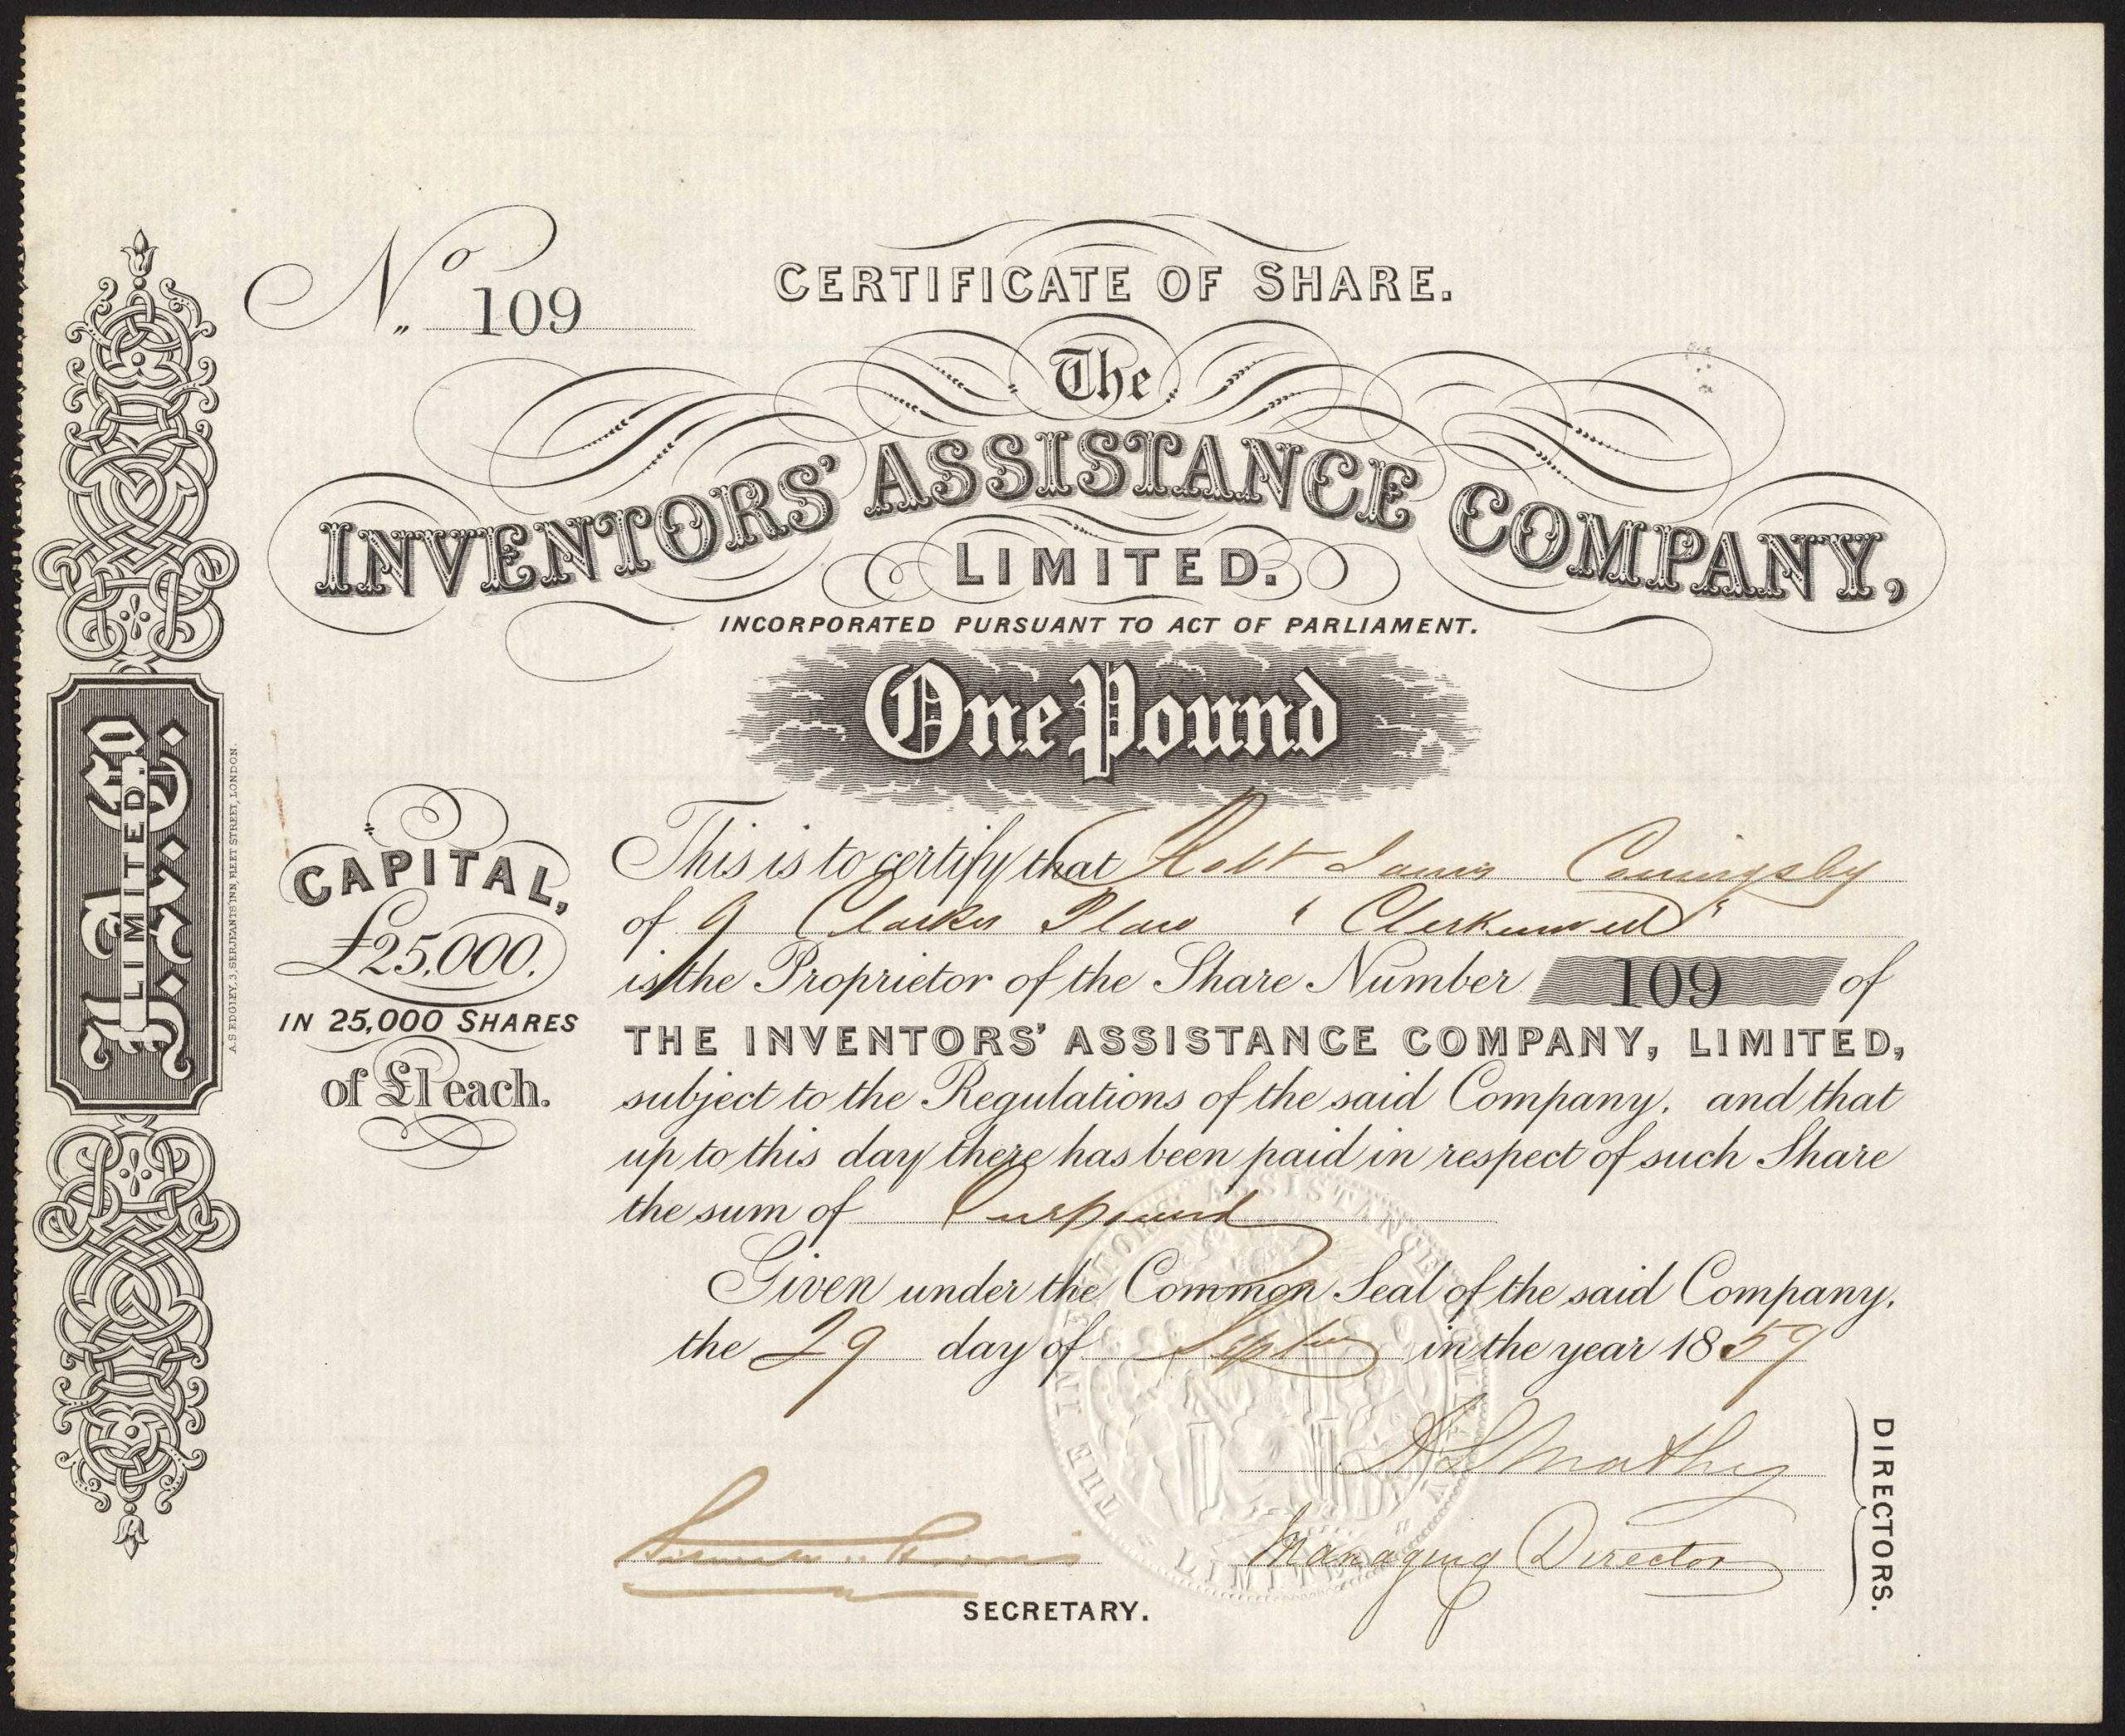 No 109
CERTIFICATE OF SHARE.
The
INVENTORS' ASSISTANCE COMPANY,
LIMITED.
INCORPORATED PURSUANT TO ACT OF PARLIAMENT.
One Pound
I. A. Co.
LIMITED.
A.S. EDGLEY, 3, SERJEANTS INN, FLEET STREET, LONDON.
CAPITAL,
£25,000.
IN 25,000 SHARES
of £1 each.
This is to certify that Robt Louis Couingsby
of 9 Clarkes Place "Clerkenwell"
is the Proprietor of the Share Number 109 of
THE INVENTORS' ASSISTANCE COMPANY, LIMITED,
subject to the Regulations of the said Company, and that
up to this day there has been paid in respect of such Share
the sum of One pound
Given under the Common Seal of the said Company,
the 29 day of Septr in the year 1859
Managing Director
DIRECTORS.
SECRETARY.
THE INVENTORS' ASSISTANCE COMPANY LIMITED